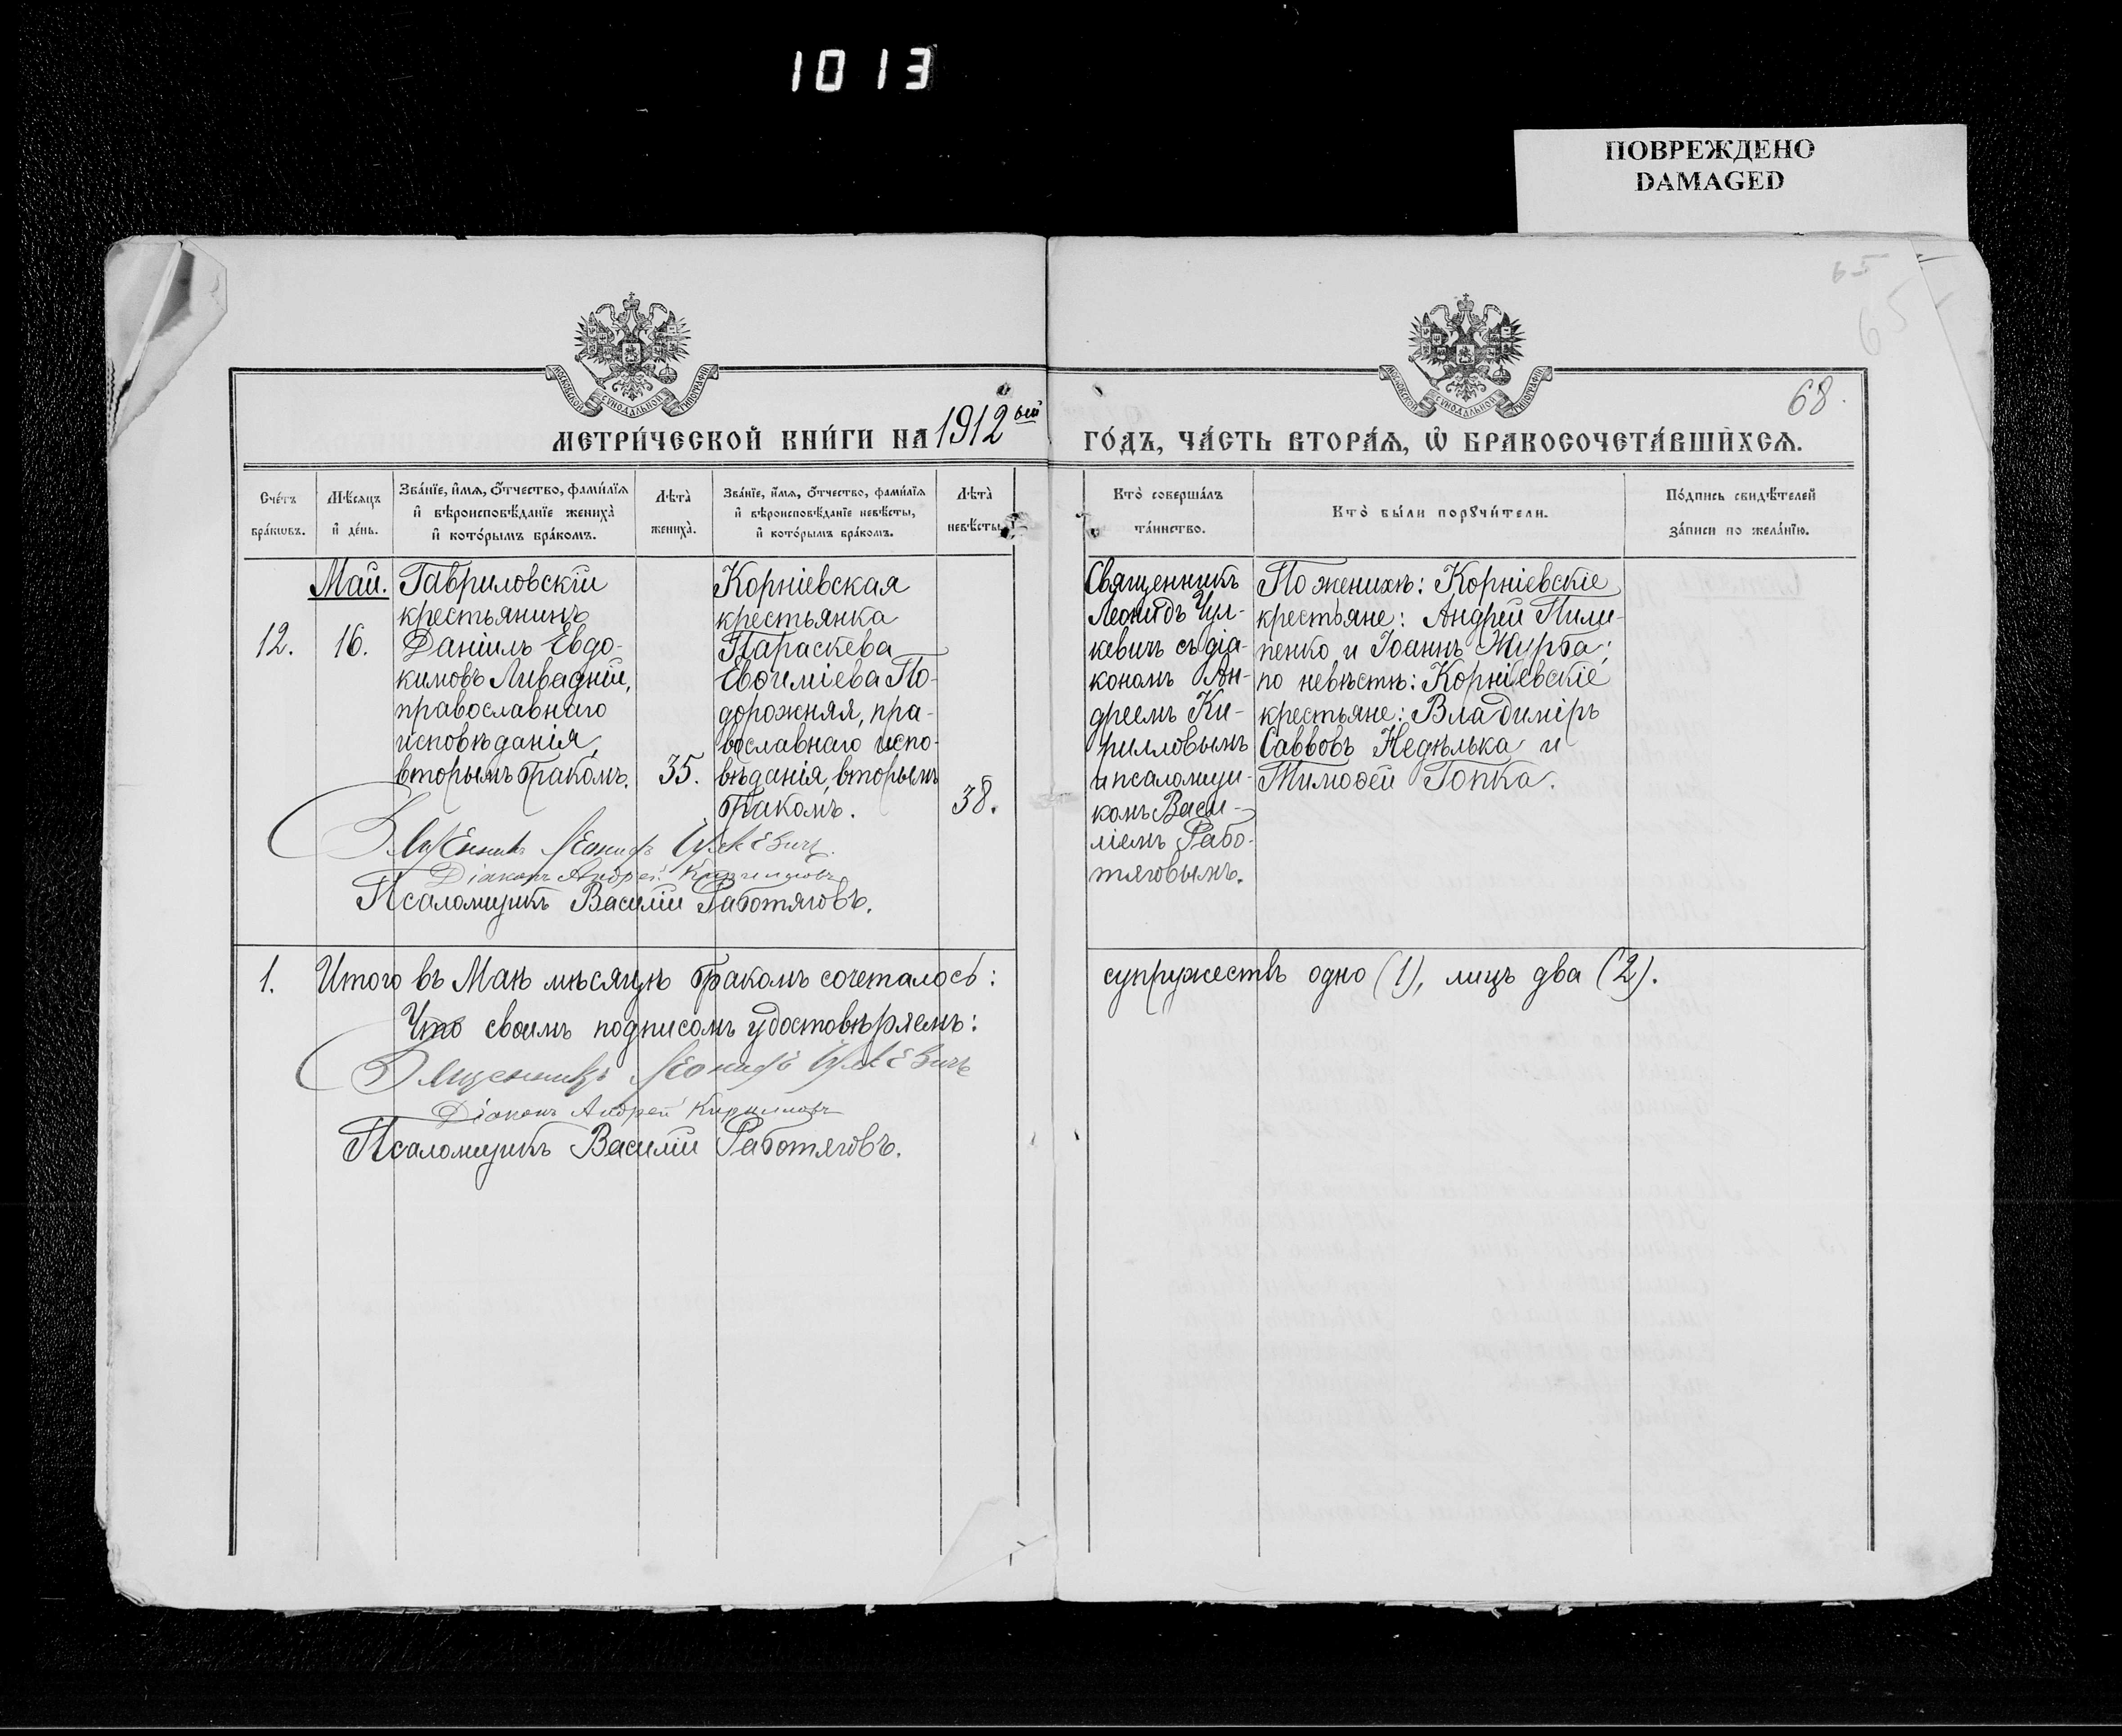 1013
ПОВРЕЖДЕНО
DAMAGED
65
65
68.
МОСКОВСКОЙ СѴНОДАЛЬНОЙ ТИПОГРАФІИ
МОСКОВСКОЙ СѴНОДАЛЬНОЙ ТИПОГРАФІИ
МЕТРИ́ЧЕСКОЙ КНИ́ГИ НА 1912ый
ГО́ДЪ, ЧА́СТЬ ВТОРА́Ѧ, Ѿ БРАКОСОЧЕТА́ВШИХСѦ.
Сче́тъ
бра́кѡвъ.
Мѣ́сѧцъ
и҆ де́нь.
Зва́нїе, и҆́мѧ, ѻ҆́тчество, фами́лїѧ
и҆ вѣроисповѣ́данїе жениха̀
и҆ кото́рымъ бра́комъ.
Лѣта̀
жениха̀.
Зва́нїе, и҆́мѧ, ѻ҆́тчество, фами́лїѧ
и҆ вѣроисповѣ́данїе невѣ́сты,
и҆ кото́рымъ бра́комъ.
Лѣта̀
невѣ́сты.
Кто̀ соверша́лъ
та́инство.
Кто̀ бы́ли порꙋчи́тели.
По́дпись свидѣ́телей
за́писи по жела́нїю.
12.
Май.
16.
Гавриловскій
крестьянинъ
Даніилъ Евдо-
кимовъ Ливадній,
православнаго
исповѣданія,
вторымъ бракомъ.
35.
Корніевская
крестьянка
Параскева
Евѳиміева По-
дорожняя, пра-
вославнаго испо-
вѣданія, вторымъ
бракомъ.
38.
Священникъ
Леонидъ Чул-
кевичъ съ діа-
кономъ Ан-
дреемъ Ки-
рилловымъ
и псаломщи-
комъ Васи-
ліемъ Рабо-
тяговымъ.
По женихѣ: Корніевскіе
крестьяне: Андрей Пили-
пенко и Іоаннъ Журба;
по невѣстѣ: Корніевскіе
крестьяне: Владиміръ
Саввовъ Недѣлька и
Тимоѳей Гопка.
Священникъ Леонидъ Чулкевичъ.
Діаконъ Андрей Кирилловъ
Псаломщикъ Василій Работяговъ.
1. Итого въ Маѣ мѣсяцѣ бракомъ сочеталось:
супружествъ одно (1), лицъ два (2).
Что своимъ подписомъ удостовѣряемъ:
Священникъ Леонидъ Чулкевичъ
Діаконъ Андрей Кирилловъ
Псаломщикъ Василій Работяговъ.